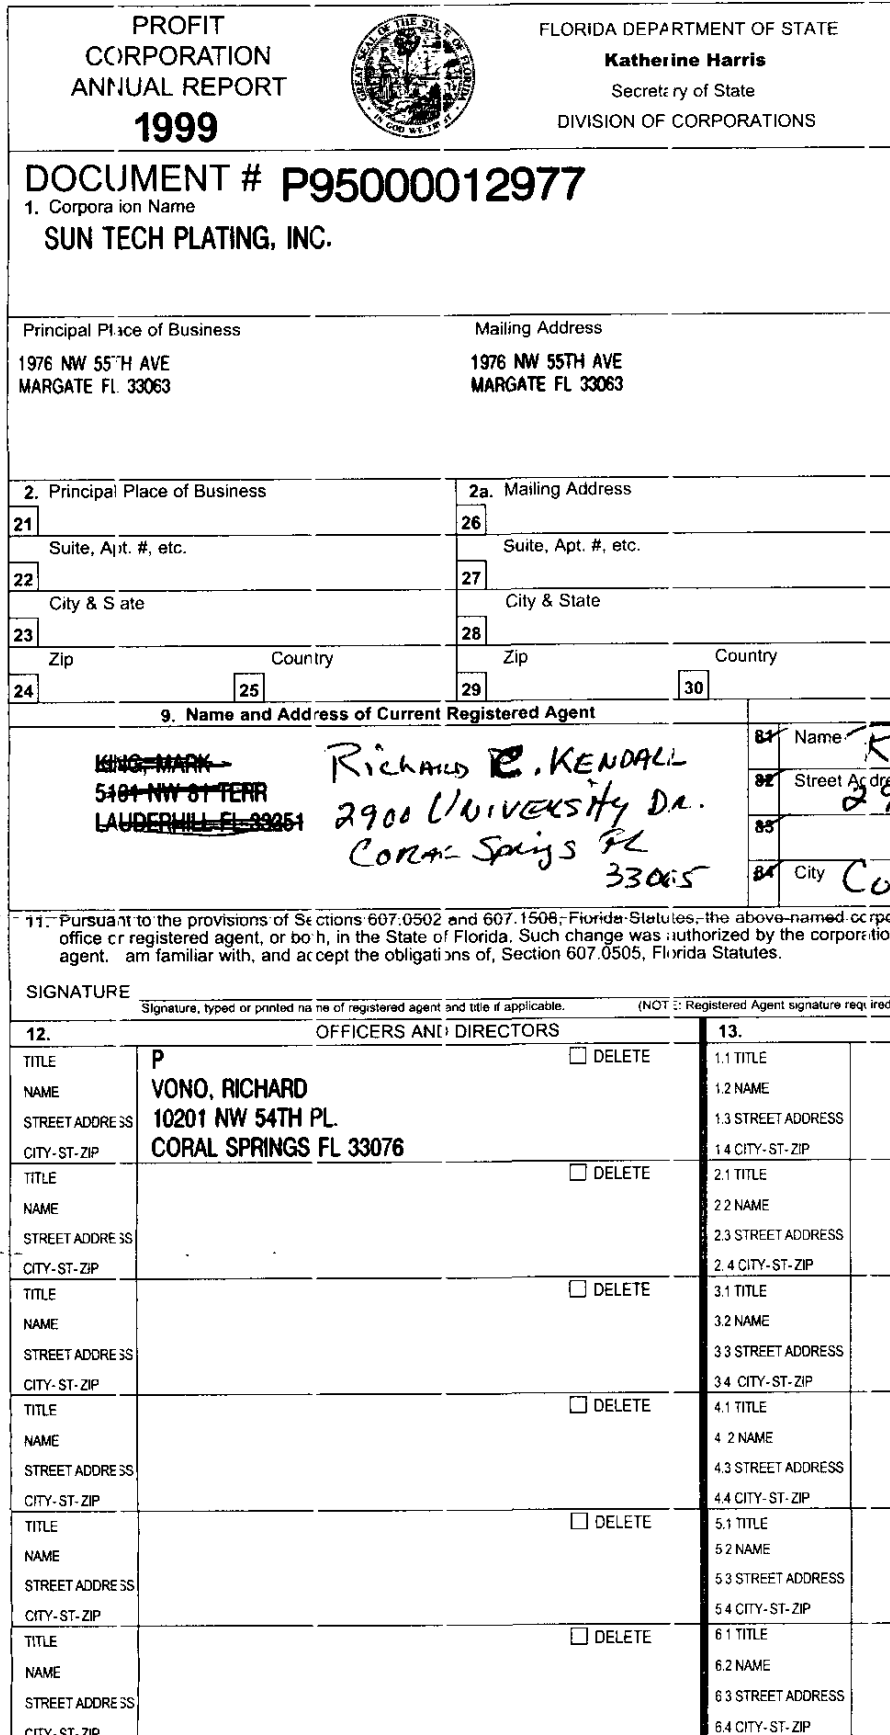 PROFIT
CORPORATION
ANNUAL REPORT
1999
GREAT SEAL OF THE STATE OF FLORIDA
IN GOD WE TRUST
FLORIDA DEPARTMENT OF STATE
Katherine Harris
Secretary of State
DIVISION OF CORPORATIONS
DOCUMENT # P95000012977
1. Corpora ion Name
SUN TECH PLATING, INC.
Principal Place of Business
Mailing Address
1976 NW 55TH AVE
MARGATE FL 33063
1976 NW 55TH AVE
MARGATE FL 33063
2. Principal Place of Business
2a. Mailing Address
21
26
Suite, Apt. #, etc.
Suite, Apt. #, etc.
22
27
City & S ate
City & State
23
28
Zip
Country
Zip
Country
24
25
29
30
9. Name and Address of Current Registered Agent
KING, MARK
5101 NW 81 TERR
LAUDERHILL FL 33351
RICHARD C. KENDALL
2900 UNIVERSITY DR.
CORAL Springs FL
33065
81 Name K
82 Street Addre
29
83
84 City Co
11. Pursuant to the provisions of Sections 607.0502 and 607.1508, Florida Statutes, the above-named corpo
office or registered agent, or bo h, in the State of Florida. Such change was authorized by the corporatio
agent. am familiar with, and accept the obligations of, Section 607.0505, Florida Statutes.
SIGNATURE
Signature, typed or printed name of registered agent and title if applicable. (NOTE: Registered Agent signature required
12. OFFICERS AND DIRECTORS
13.
TITLE P DELETE
NAME VONO, RICHARD
STREET ADDRESS 10201 NW 54TH PL.
CITY-ST-ZIP CORAL SPRINGS FL 33076
1.1 TITLE
1.2 NAME
1.3 STREET ADDRESS
1 4 CITY-ST-ZIP
TITLE DELETE
NAME
STREET ADDRESS
CITY-ST-ZIP
2.1 TITLE
2 2 NAME
2.3 STREET ADDRESS
2. 4 CITY-ST-ZIP
TITLE DELETE
NAME
STREET ADDRESS
CITY-ST-ZIP
3.1 TITLE
3.2 NAME
3 3 STREET ADDRESS
3 4 CITY-ST-ZIP
TITLE DELETE
NAME
STREET ADDRESS
CITY-ST-ZIP
4.1 TITLE
4 2 NAME
4.3 STREET ADDRESS
4.4 CITY-ST-ZIP
TITLE DELETE
NAME
STREET ADDRESS
CITY-ST-ZIP
5.1 TITLE
5 2 NAME
5 3 STREET ADDRESS
5 4 CITY-ST-ZIP
TITLE DELETE
NAME
STREET ADDRESS
CITY-ST-ZIP
6 1 TITLE
6.2 NAME
6 3 STREET ADDRESS
6.4 CITY-ST-ZIP